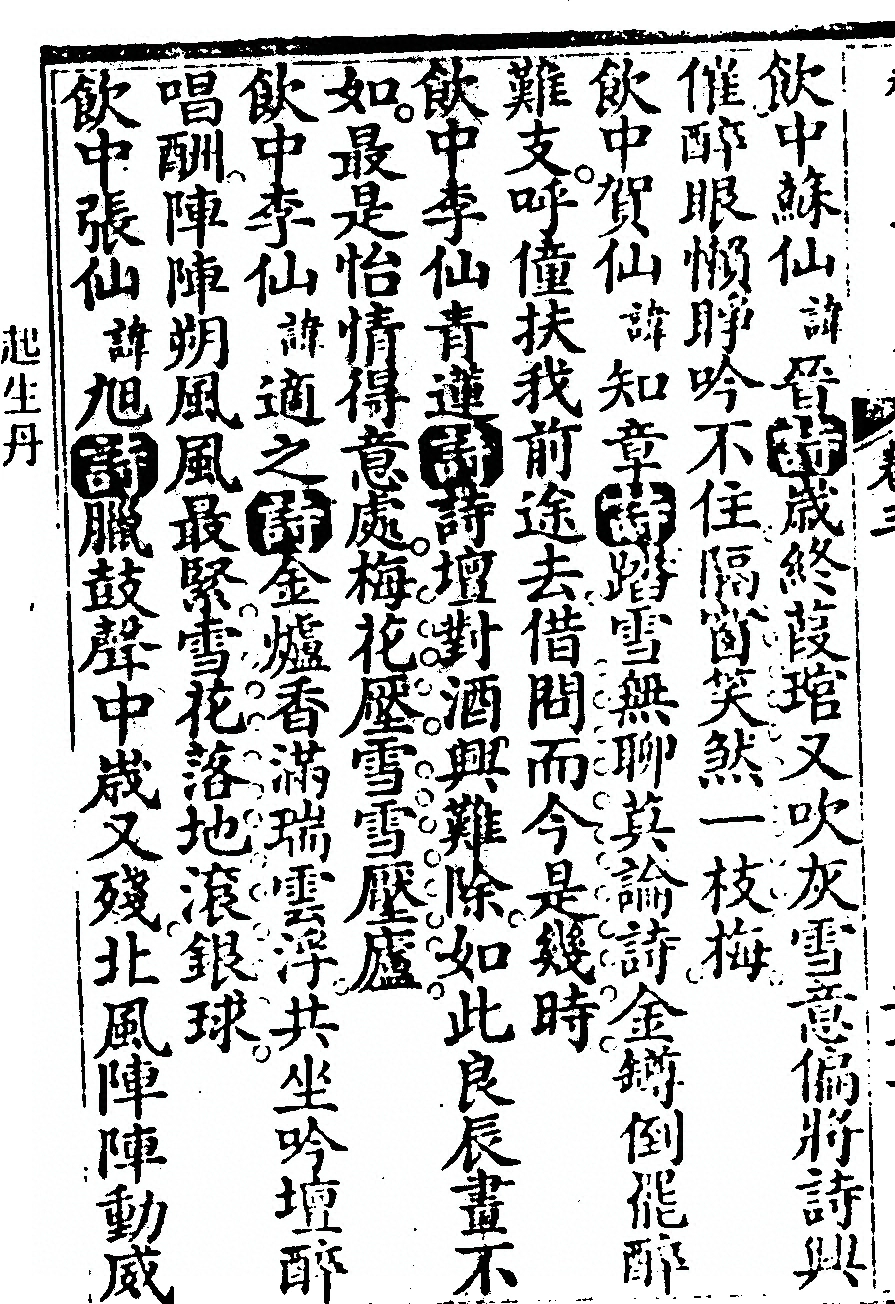 飲中蘇仙諱晉詩歲終葭琯又吹灰雪意偏將詩興
催醉眼懶睜吟不住隔窗笑煞一枝梅
飲中賀仙諱知章詩踏雪無聊莫論詩金罇倒罷醉
難支呼僮扶我前途去借問而今是幾時
飲中李仙青蓮詩詩壇對酒興難除如此良辰畫不
如最是怡情得意處梅花壓雪雪壓廬
飲中李仙諱適之詩金爐香滿瑞雲浮共坐吟壇醉
唱酬陣陣朔風風最緊雪花落地滾銀球
飲中張仙諱旭詩臘鼓聲中歲又殘北風陣陣動威
起生丹